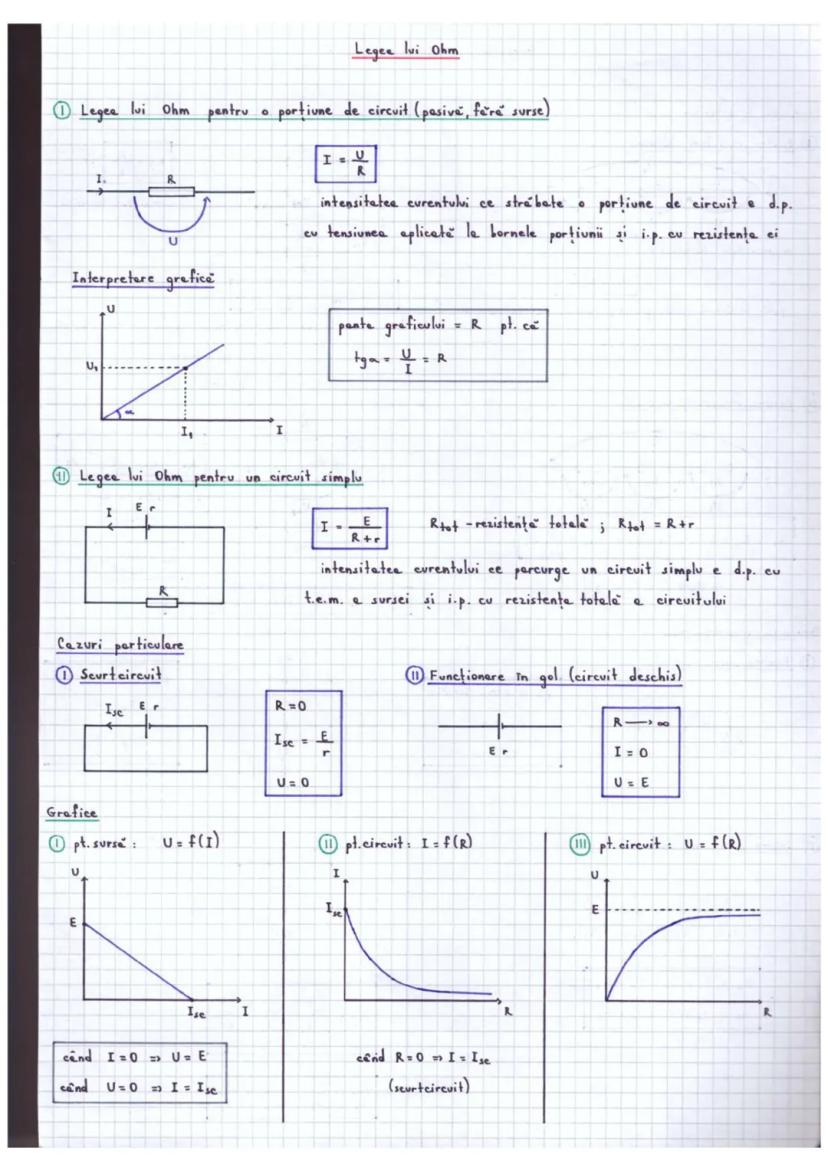 Legea lui Ohm
I Legea lui Ohm pentru o porțiune de circuit (pasivă, fără surse)
I R U
I = U/R
intensitatea curentului ce străbate o porțiune de circuit e d.p.
cu tensiunea aplicată la bornele porțiunii și i.p. cu rezistența ei
Interpretare grafică
U
U₁
α
I₁ I
panta graficului = R pt. că
tgα = U/I = R
II Legea lui Ohm pentru un circuit simplu
I E r
R
I = E/(R+r)
Rtot - rezistență totală ; Rtot = R+r
intensitatea curentului ce parcurge un circuit simplu e d.p. cu
t.e.m. a sursei și i.p. cu rezistența totală a circuitului
Cazuri particulare
I Scurtcircuit
Isc E r
R = 0
Isc = E/r
U = 0
II Funcționare în gol (circuit deschis)
E r
R → ∞
I = 0
U = E
Grafice
I pt. sursă : U = f(I)
U
E
Isc I
când I = 0 => U = E
când U = 0 => I = Isc
II pt. circuit : I = f(R)
I
Isc
R
când R = 0 => I = Isc
(scurtcircuit)
III pt. circuit : U = f(R)
U
E
R